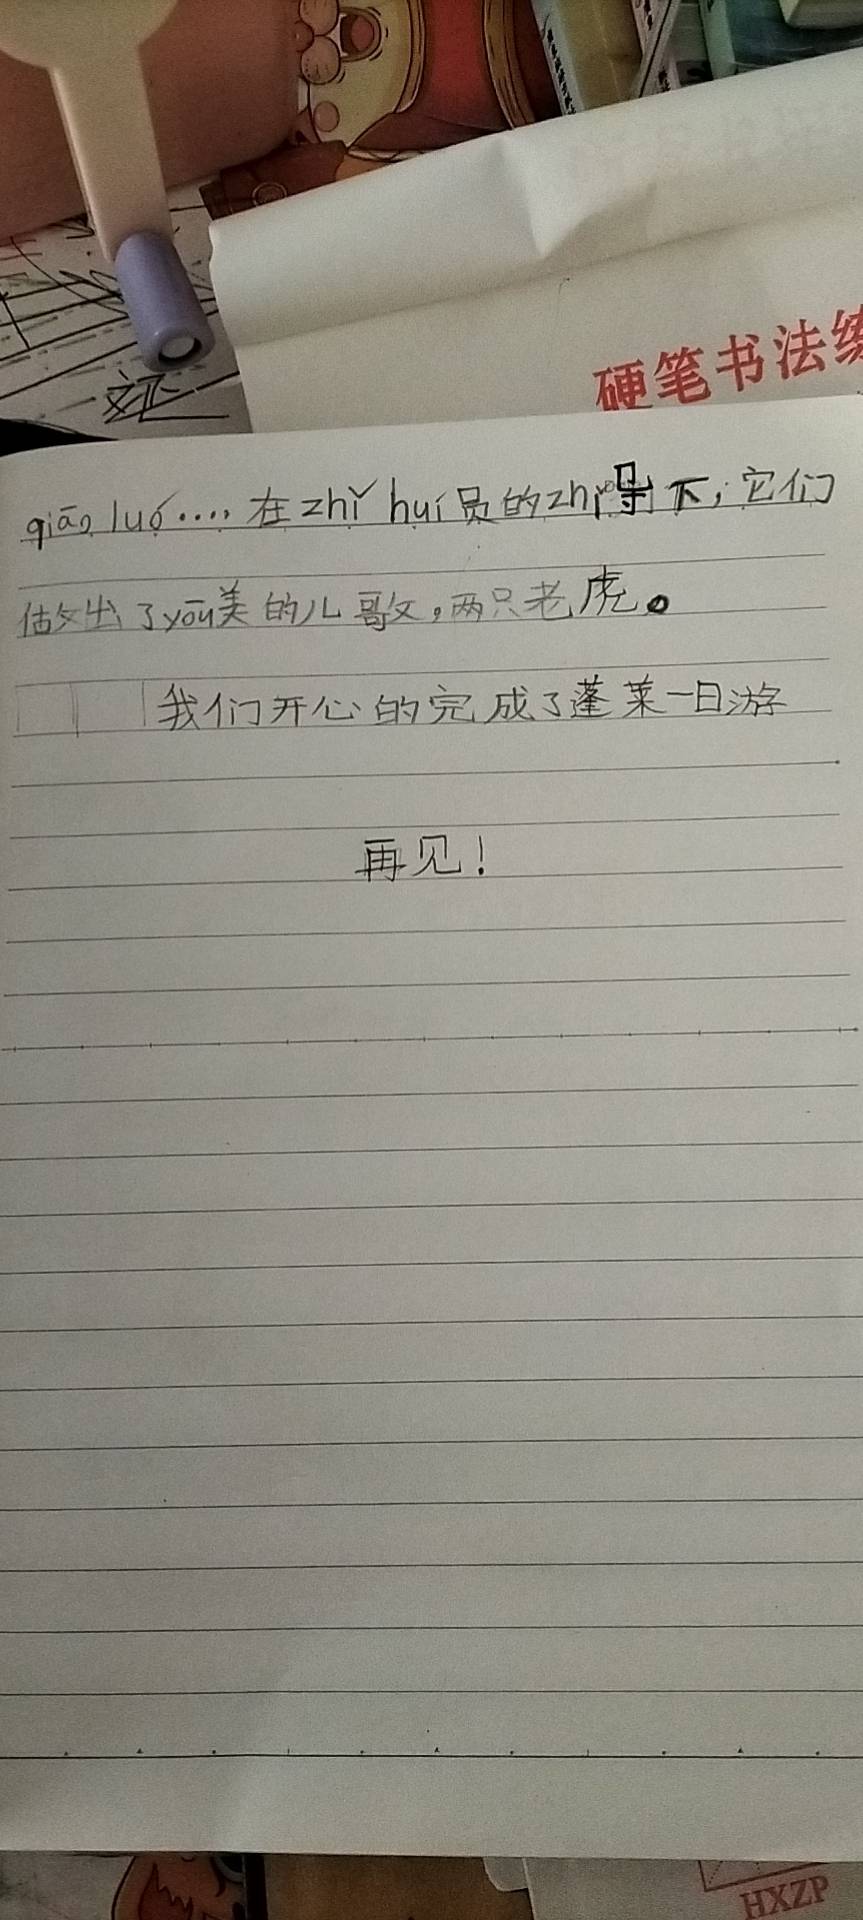 硬笔书法练
qiāo luó····，在zhǐ huí员的zhǐ导下，它们
做出了yōu美的儿歌，两只老虎。
我们开心的完成了蓬莱一日游
再见！
HXZP